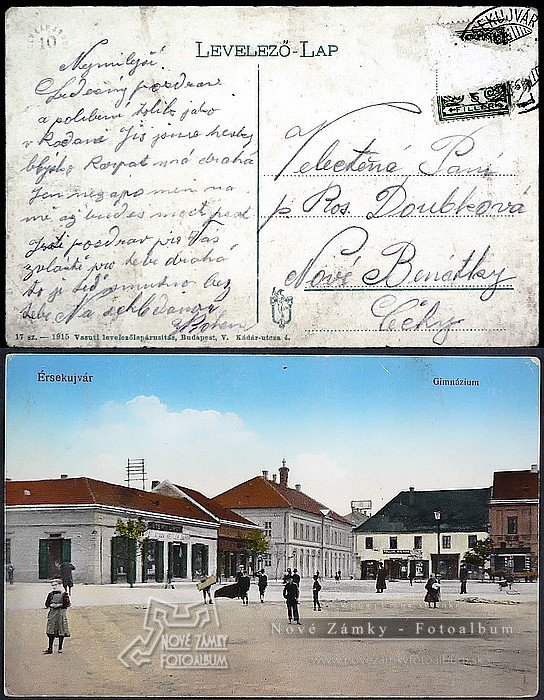 LEVELEZŐ-LAP
10
ÉRSEKUJVÁR
5
FILLÉR
Nejmilejší!
Srdečný pozdrav
a políbení tolik jako
v Jiš jsme hezky
Karpat má drahá
Jen nezapomeň na
mě až budeš moct psát
Ještě pozdrav pro Vás
zvláště pro tebe drahá
to je teď smutno bez
tebe Na schledanou
Velectěná Paní
Ros. Doubková
Nové Benátky
Čéhy
17 sz. — 1915 Vasuti levelezőlapárusitás, Budapest, V. Kádár-utcza 4.
Érsekujvár
Gimnázium
NOVÉ ZÁMKY
FOTOALBUM
Nové Zámky - Fotoalbum